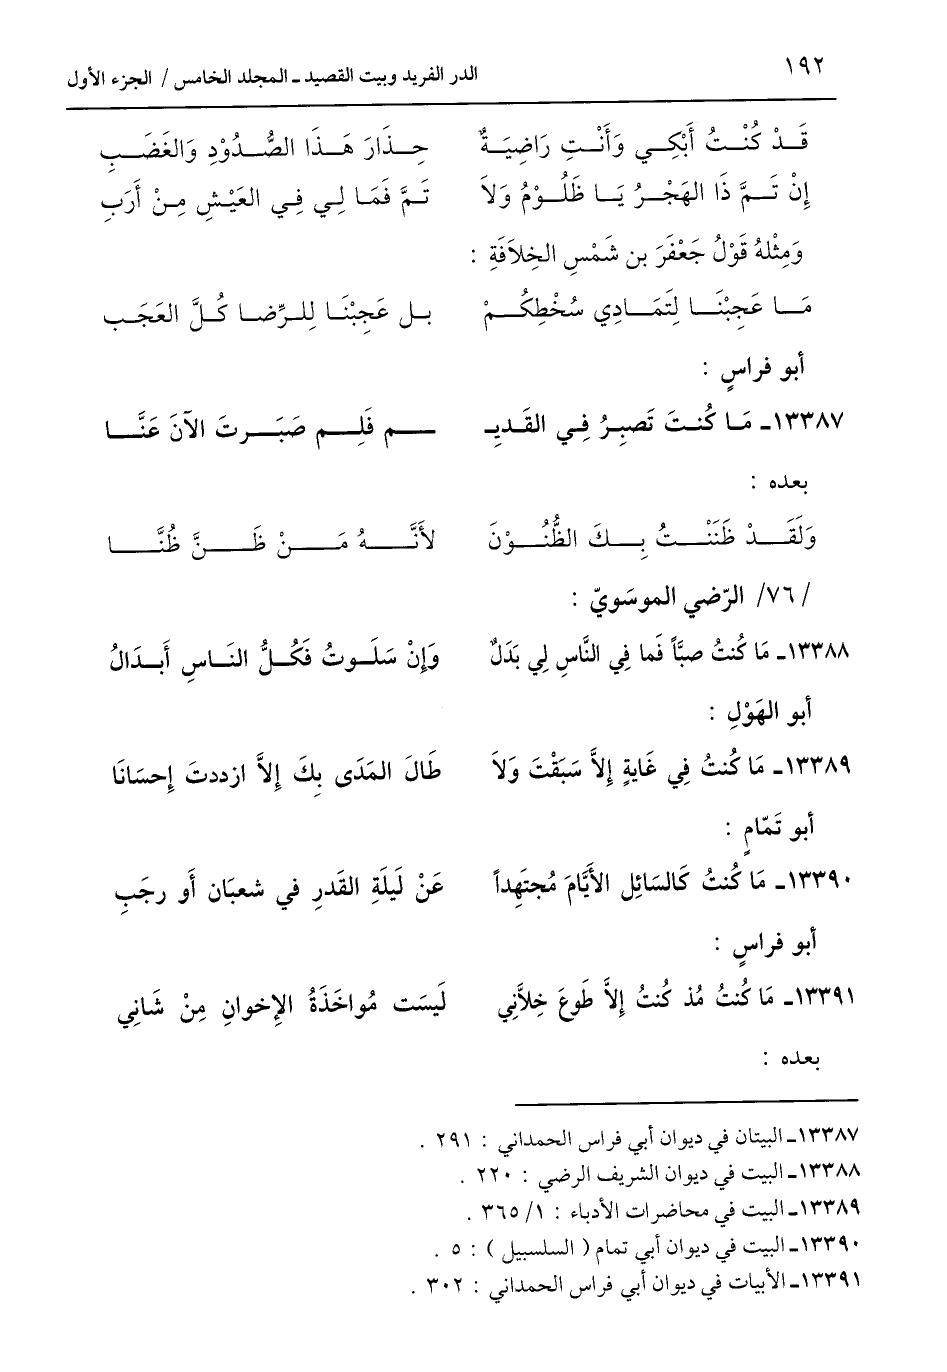 ١٩٢ الدر الفريد وبيت القصيد ـ المجلد الخامس / الجزء الأول
قَدْ كُنْتُ أَبْكِي وَأَنْتِ رَاضِيَةٌ حِذَارَ هَذَا الصُّدُوْدِ وَالغَضَبِ
إِنْ تَمَّ ذَا الهَجْرُ يَا ظَلُوْمُ وَلاَ تَمَّ فَمَا لِي فِي العَيْشِ مِنْ أَرَبِ
وَمِثْلهُ قَوْلُ جَعْفَرَ بن شَمْسِ الخِلاَفَةِ :
مَا عَجِبْنَا لِتَمَادِي سُخْطِكُمْ بل عَجِبْنَا لِلرِّضا كُلَّ العَجَب
أبو فراسٍ :
١٣٣٨٧ـ مَا كُنتَ تَصبِرُ فِي القَديِـ ـم فَلِم صَبَرتَ الآنَ عَنَّا
بعده :
وَلَقَدْ ظَنَنْتُ بِكَ الظُّنُوْنَ لأَنَّهُ مَنْ ظَنَّ ظُنَّا
/٧٦/ الرّضي الموسَويّ :
١٣٣٨٨ـ مَا كُنتُ صبَّاً فَما فِي النَّاسِ لِي بَدَلٌ وَإِنْ سَلَوتُ فَكُلُّ النَاسِ أَبدَالُ
أبو الهَوْلِ :
١٣٣٨٩ـ مَا كُنتُ فِي غَايةٍ إِلاَّ سَبَقْتَ وَلاَ طَالَ المَدَى بِكَ إِلاَّ ازددتَ إِحسَانَا
أبو تَمّامٍ :
١٣٣٩٠ـ مَا كُنتُ كَالسَائِل الأَيَّامَ مُجتَهِداً عَنْ لَيلَةِ القَدرِ في شعبَان أَو رجَبِ
أبو فراسٍ :
١٣٣٩١ـ مَا كُنتُ مُذ كُنتُ إِلاَّ طَوعَ خِلاَّنِي لَيسَت مُواخَذَةُ الإِخوانِ مِنْ شَانِي
بعده :
١٣٣٨٧ـ البيتان في ديوان أبي فراس الحمداني : ٢٩١ .
١٣٣٨٨ـ البيت في ديوان الشريف الرضي : ٢٢٠ .
١٣٣٨٩ـ البيت في محاضرات الأدباء : ١/ ٣٦٥ .
١٣٣٩٠ـ البيت في ديوان أبي تمام ( السلسبيل ) : ٥ .
١٣٣٩١ـ الأبيات في ديوان أبي فراس الحمداني : ٣٠٢ .